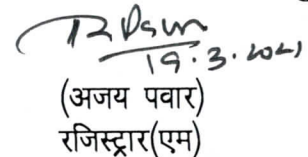 19.3.2021
(अजय पवार)
रजिस्ट्रार(एम)